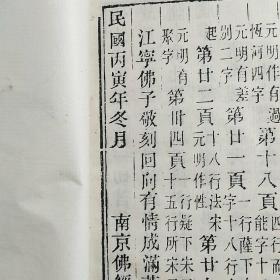 過 第十八頁
恆河四字
元明有差
別二字 第廿一頁 一行薩下
字十八行
起 第廿二頁 十八行法宋
元明作性 第廿
元明有
聚字 第卌四頁 一行疑下宋
十五行所宋
江寧佛子破刻回向有情成滿
民國丙寅年冬月 南京佛經